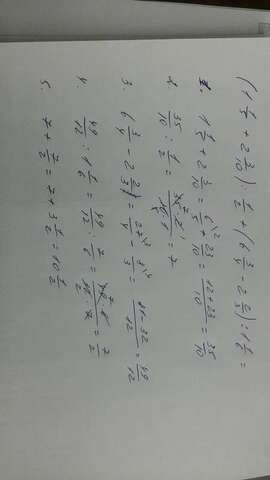 (1 1/5 + 2 3/10) : 1/2 + (6 3/4 - 2 2/3) : 1 1/6 =
1. 1 1/5 + 2 3/10 = 6/5 + 23/10 = 12+23/10 = 35/10
2. 35/10 : 1/2 = 35·2/10·1 = 7
3. 6 3/4 - 2 2/3 = 27/4 - 8/3 = 81-32/12 = 49/12
4. 49/12 : 1 1/6 = 49/12 : 7/6 = 49·6/12·7 = 7/2
5. 7 + 7/2 = 7 + 3 1/2 = 10 1/2